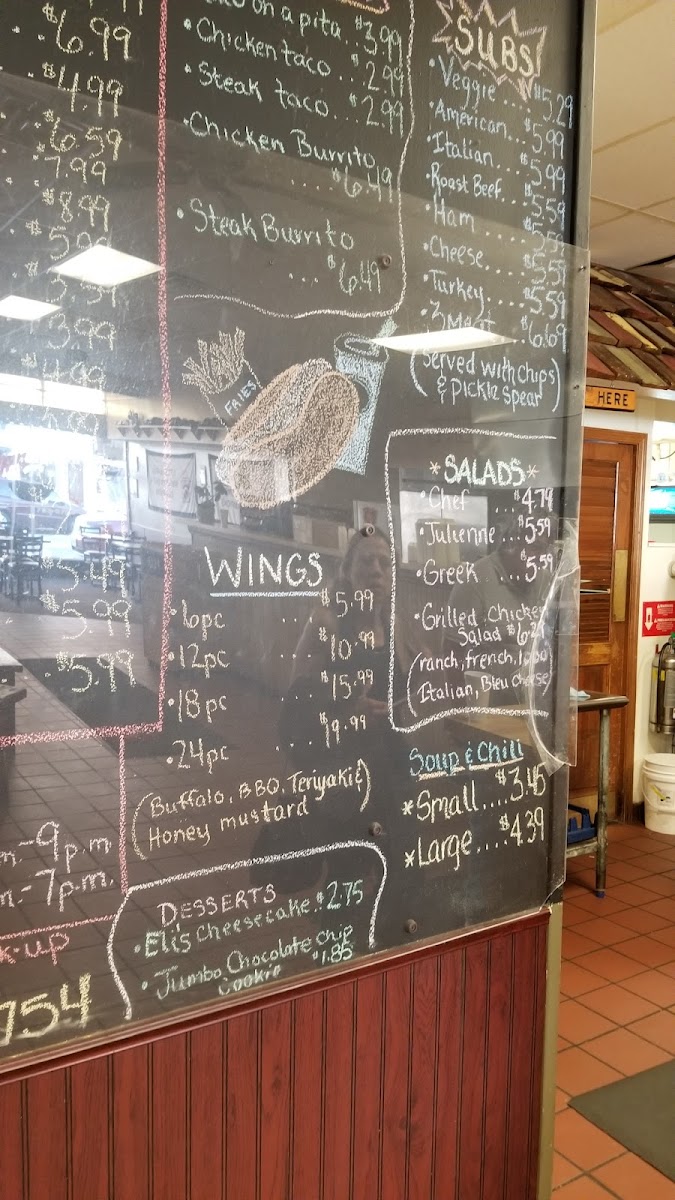 6.99
$4.99
$6.59
7.99
$8.99
3.99
$5.49
$5.99
$5.99
9 p.m
7 p.m.
754
on a pita...$3.99
•Chicken taco...$2.99
•Steak taco...$2.99
•Chicken Burrito
....$6.49
•Steak Burrito
...$6.49
FRIES
WINGS
•6pc ... $5.99
•12pc ... $10.99
•18pc ... $15.99
•24pc ... $19.99
(Buffalo, BBQ, Teriyaki &
Honey mustard)
DESSERTS
•Eli's Cheesecake.$2.75
•Jumbo Chocolate Chip
Cookie $1.85
SUBS
•Veggie....$5.29
•American...$5.99
•Italian....$5.99
•Roast Beef..$5.59
•Ham.....$5.59
•Cheese....$5.59
•Turkey....$5.59
•3 Meat...$6.69
(served with chips
& pickle spear)
*SALADS*
•Chef ...$4.79
•Julienne...$5.59
•Greek ...$5.59
•Grilled Chicken
Salad
(ranch, french, 1000
Italian, Bleu Cheese)
Soup & Chili
*Small....$3.45
*Large....$4.39
HERE